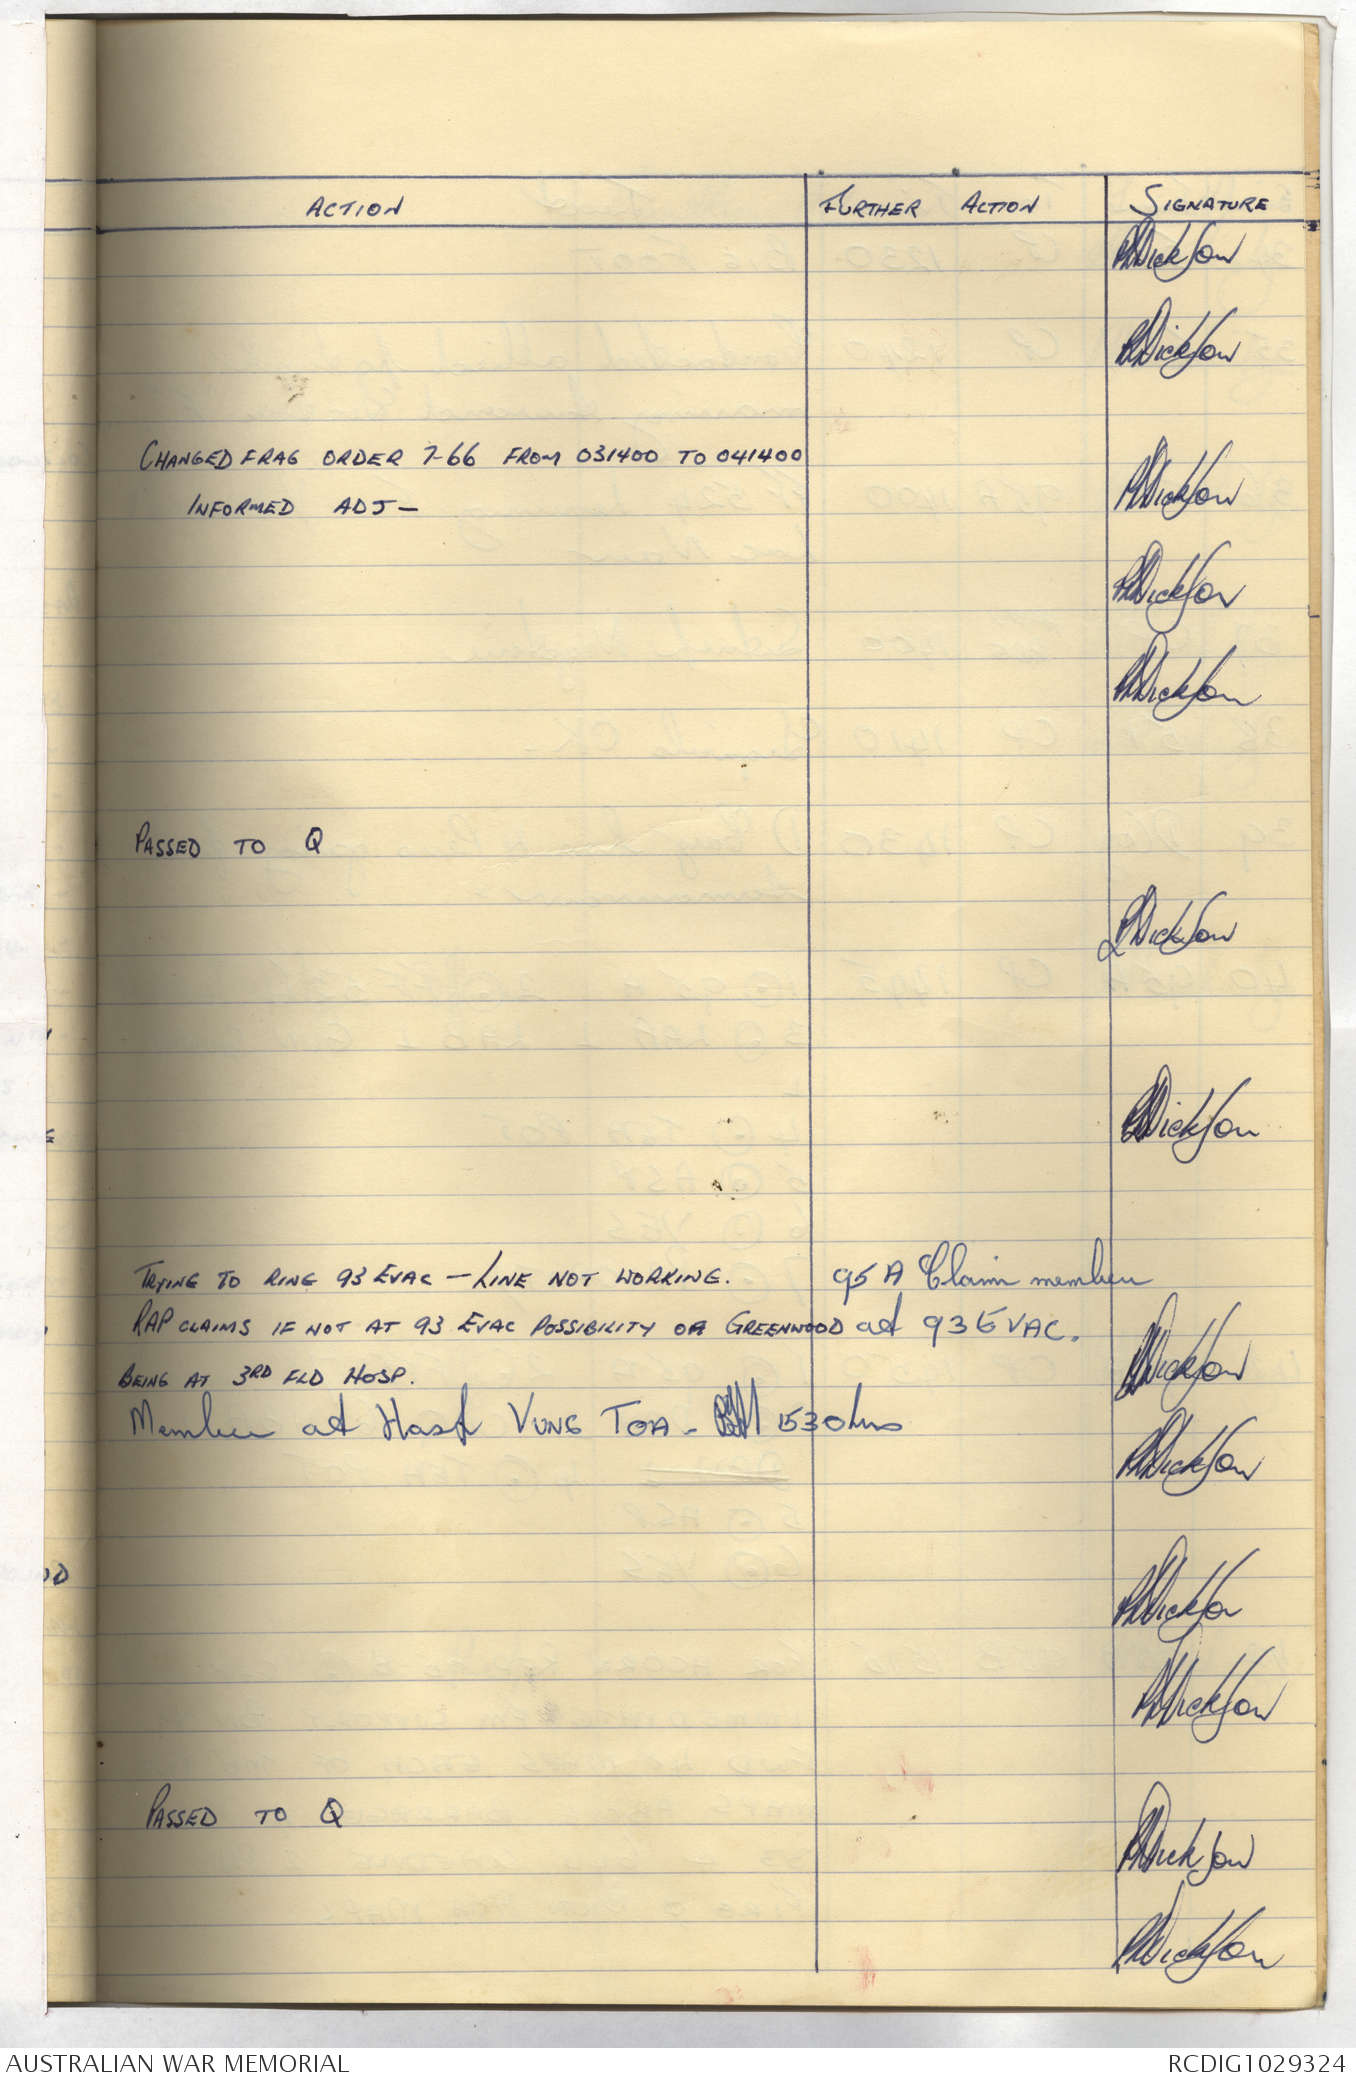 ACTION FURTHER ACTION SIGNATURE
Dickson
Dickson
CHANGED FRAG ORDER 7-66 FROM 031400 TO 041400
INFORMED ADJ — Dickson
Dickson
Dickson
PASSED TO Q
Dickson
Dickson
TRYING TO RING 93 EVAC — LINE NOT WORKING. 95 A Claim member
RAP CLAIMS IF NOT AT 93 EVAC POSSIBILITY OF GREENWOOD at 93 EVAC.
BEING AT 3RD FLD HOSP. Dickson
Member at Hosp VUNG TOA - 1530hrs
Dickson
Dickson
Dickson
PASSED TO Q
Dickson
Dickson
AUSTRALIAN WAR MEMORIAL RCDIG1029324